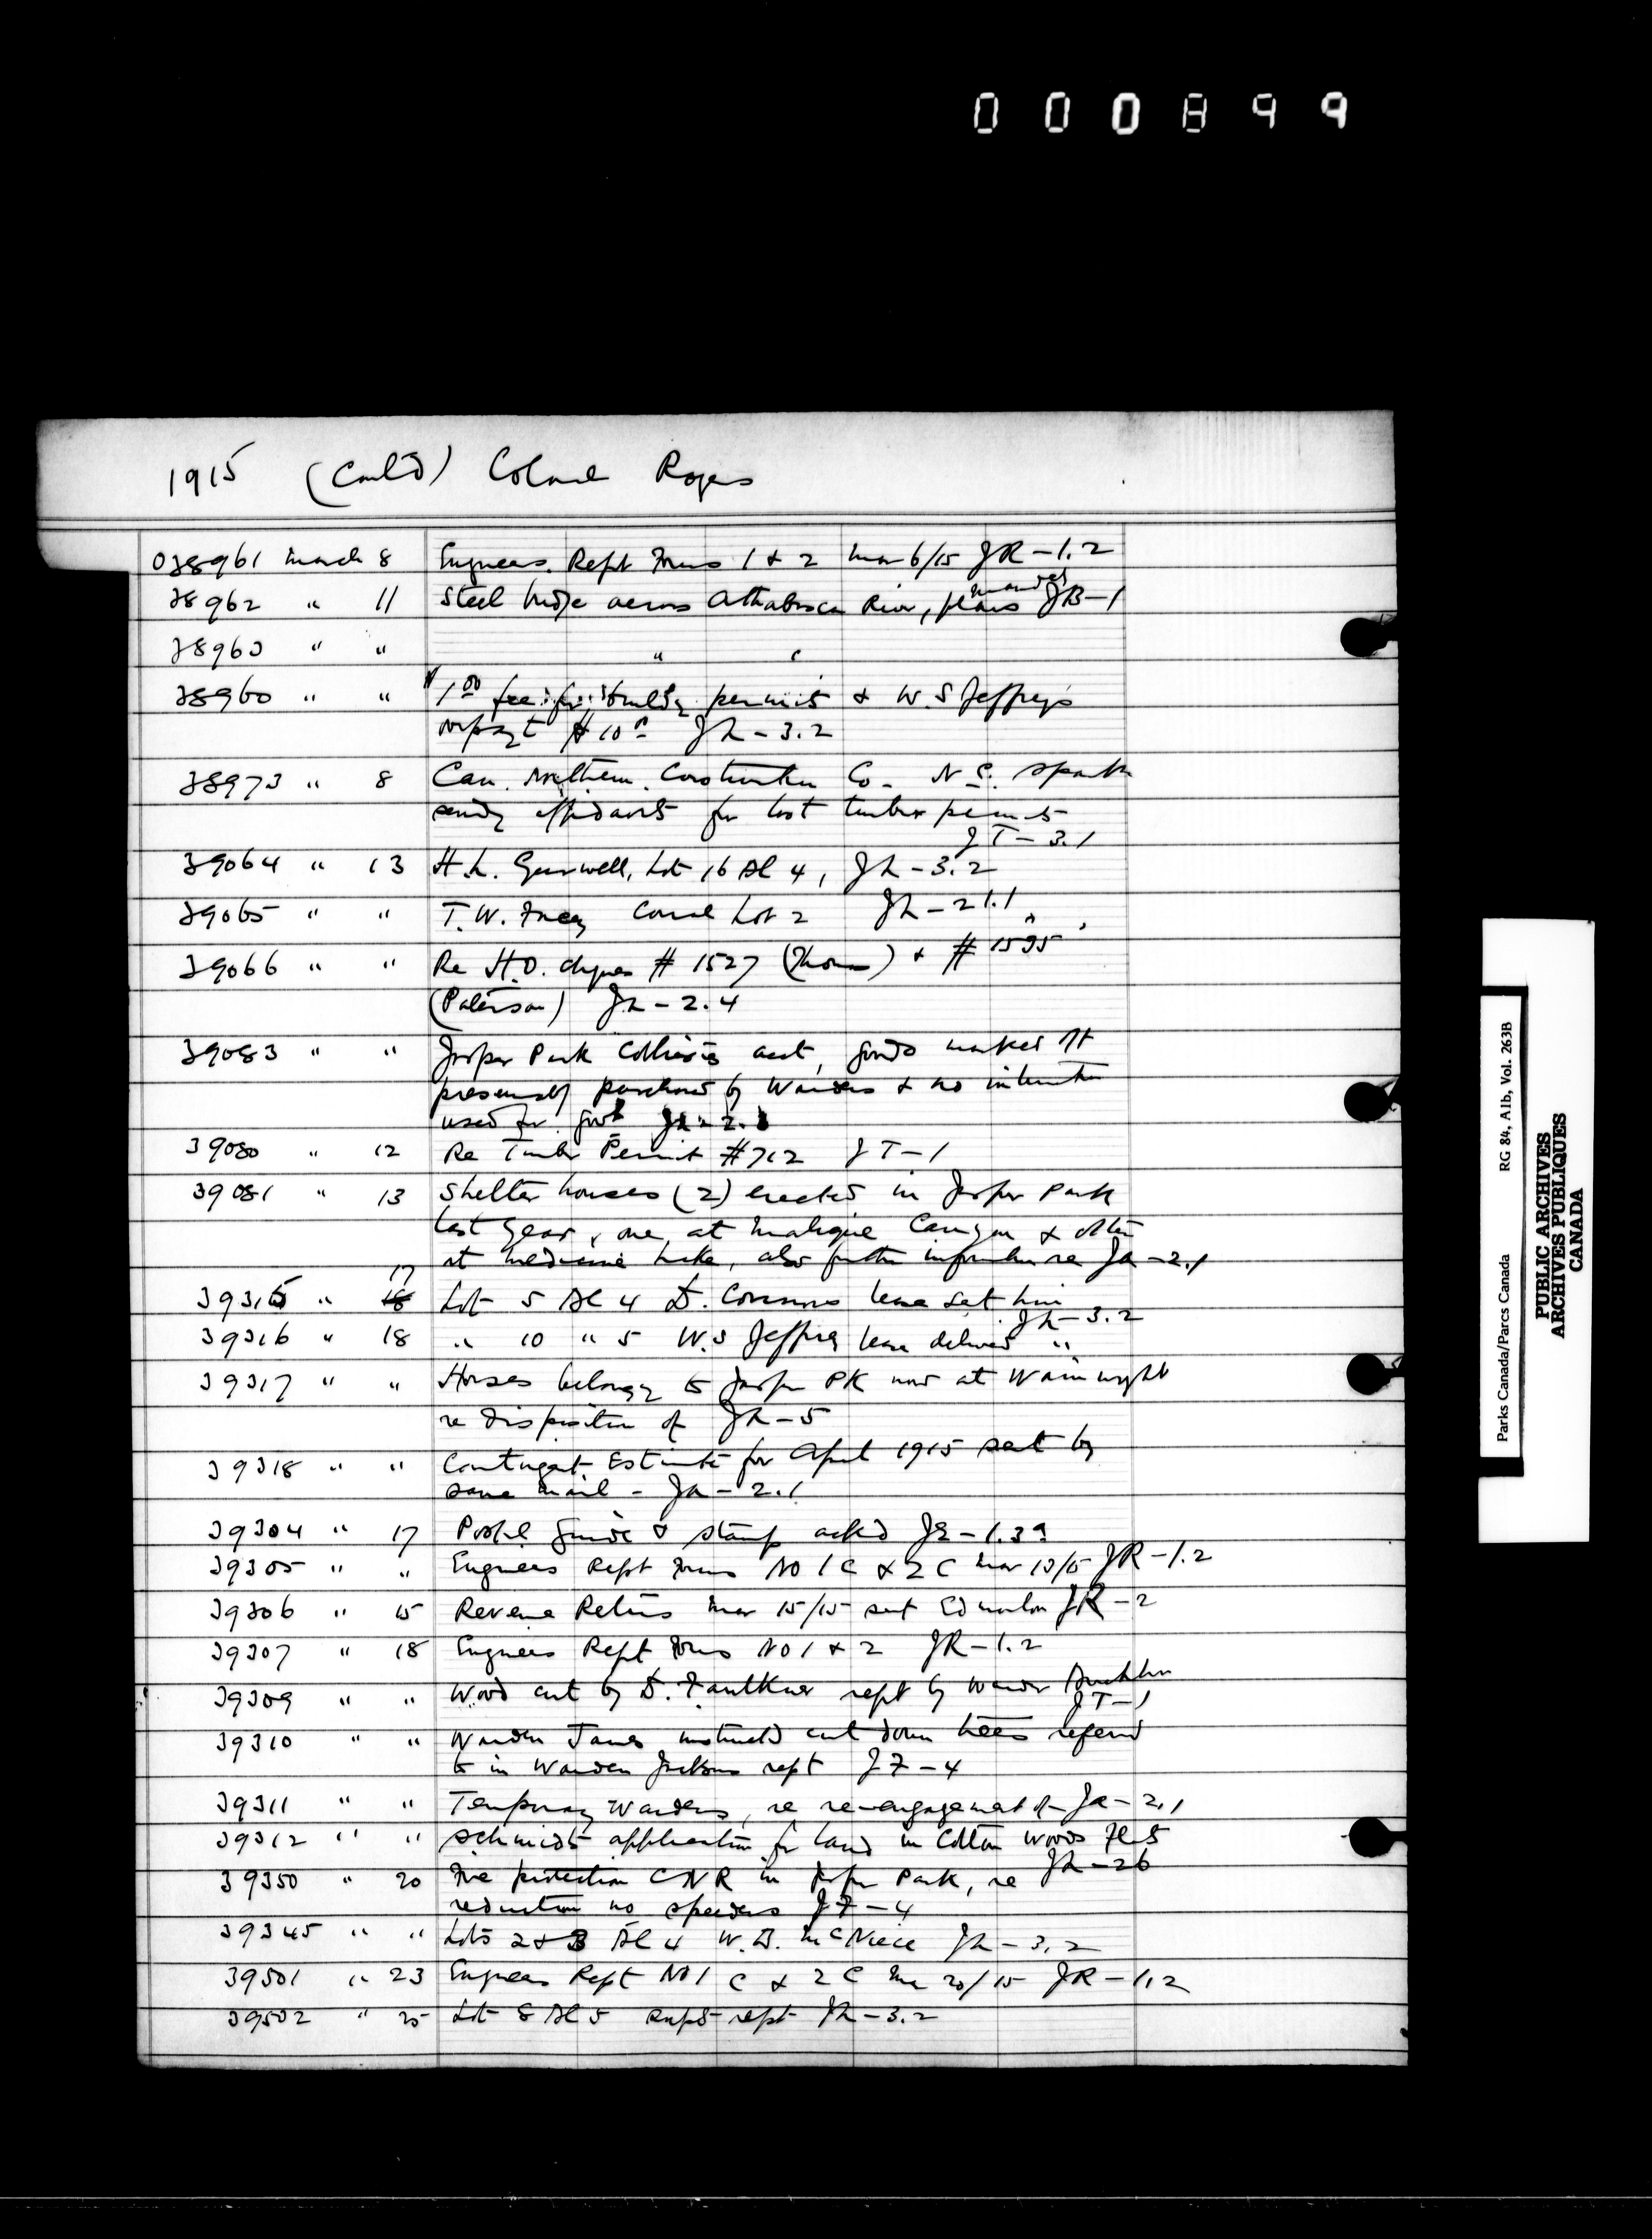 000899
1915 (Cont'd) Colonel Rogers
038961 March 8 Engineers Rept Forms 1 & 2 Mar 6/15 JR-1.2
38962 " 11 Steel bridge across Athabasca River, plans JB-1
38963 " " " "
38960 " " $1.00 fee for building permit & W.S Jeffreys
JL-3.2
38973 " 8 Can. Northern Construction Co. N.S.
sending affidavits for lost timber permits
JT-3.1
39064 " 13 H.L. Lot 16 Bl 4, JL-3.2
39065 " " T.W. Corral Lot 2 JL-21.1
39066 " " Re H.O. cheques # 1527 (Thomas) & # 1595
(Paterson) JL-2.4
39083 " " Jasper Park Collieries acct, goods marked
presumably purchased by Wardens & no
used for Govt
39080 " 12 Re Timber Permit #712 JT-1
39081 " 13 Shelter houses (2) erected in Jasper Park
last year, one at Maligne Canyon & other
at Medicine Lake, also further information re JA-2.1
39315 " 17 18 Lot 5 Bl 4 D. Connors lease set him
JL-3.2
39316 " 18 " 10 " 5 W.S Jeffrey lease delivered "
39317 " " Horses belongg to Jasper PK now at Wainwright
re disposition of JR-5
39318 " " Contingent Estimate for April 1915 sent by
same mail - JA-2.1
39304 " 17 Postal Guide & stamp ackd
39305 " " Engineers Rept Forms No 1C & 2C Mar 13/15 JR-1.2
39306 " 15 Revenue Returns Mar 15/15 sent Edmonton JR-2
39307 " 18 Engineers Rept Forms No 1 & 2 JR-1.2
39309 " " Wood cut by D. Faulkner rept by Warden
JT-1
39310 " " Warden Jones instructed cut down trees referred
to in Warden Jacksons rept JF-4
39311 " " Temporary Wardens, re re-engagement of JA-2.1
39312 " " Schmidts application for land in Cotton Woods Flats
JL-26
39350 " 20 Fire protection CNR in Jasper Park, re
reduction no speeders JF-4
39345 " " Lots 2 & 3 Bl 4 W.B. McNiece JL-3.2
39501 " 23 Engineers Rept No 1 C & 2 C Mar 20/15 JR-1.2
39502 " 25 Lot 8 Bl 5 Supts rept JL-3.2
Parks Canada/Parcs Canada RG 84, A1b, Vol. 263B
PUBLIC ARCHIVES
ARCHIVES PUBLIQUES
CANADA